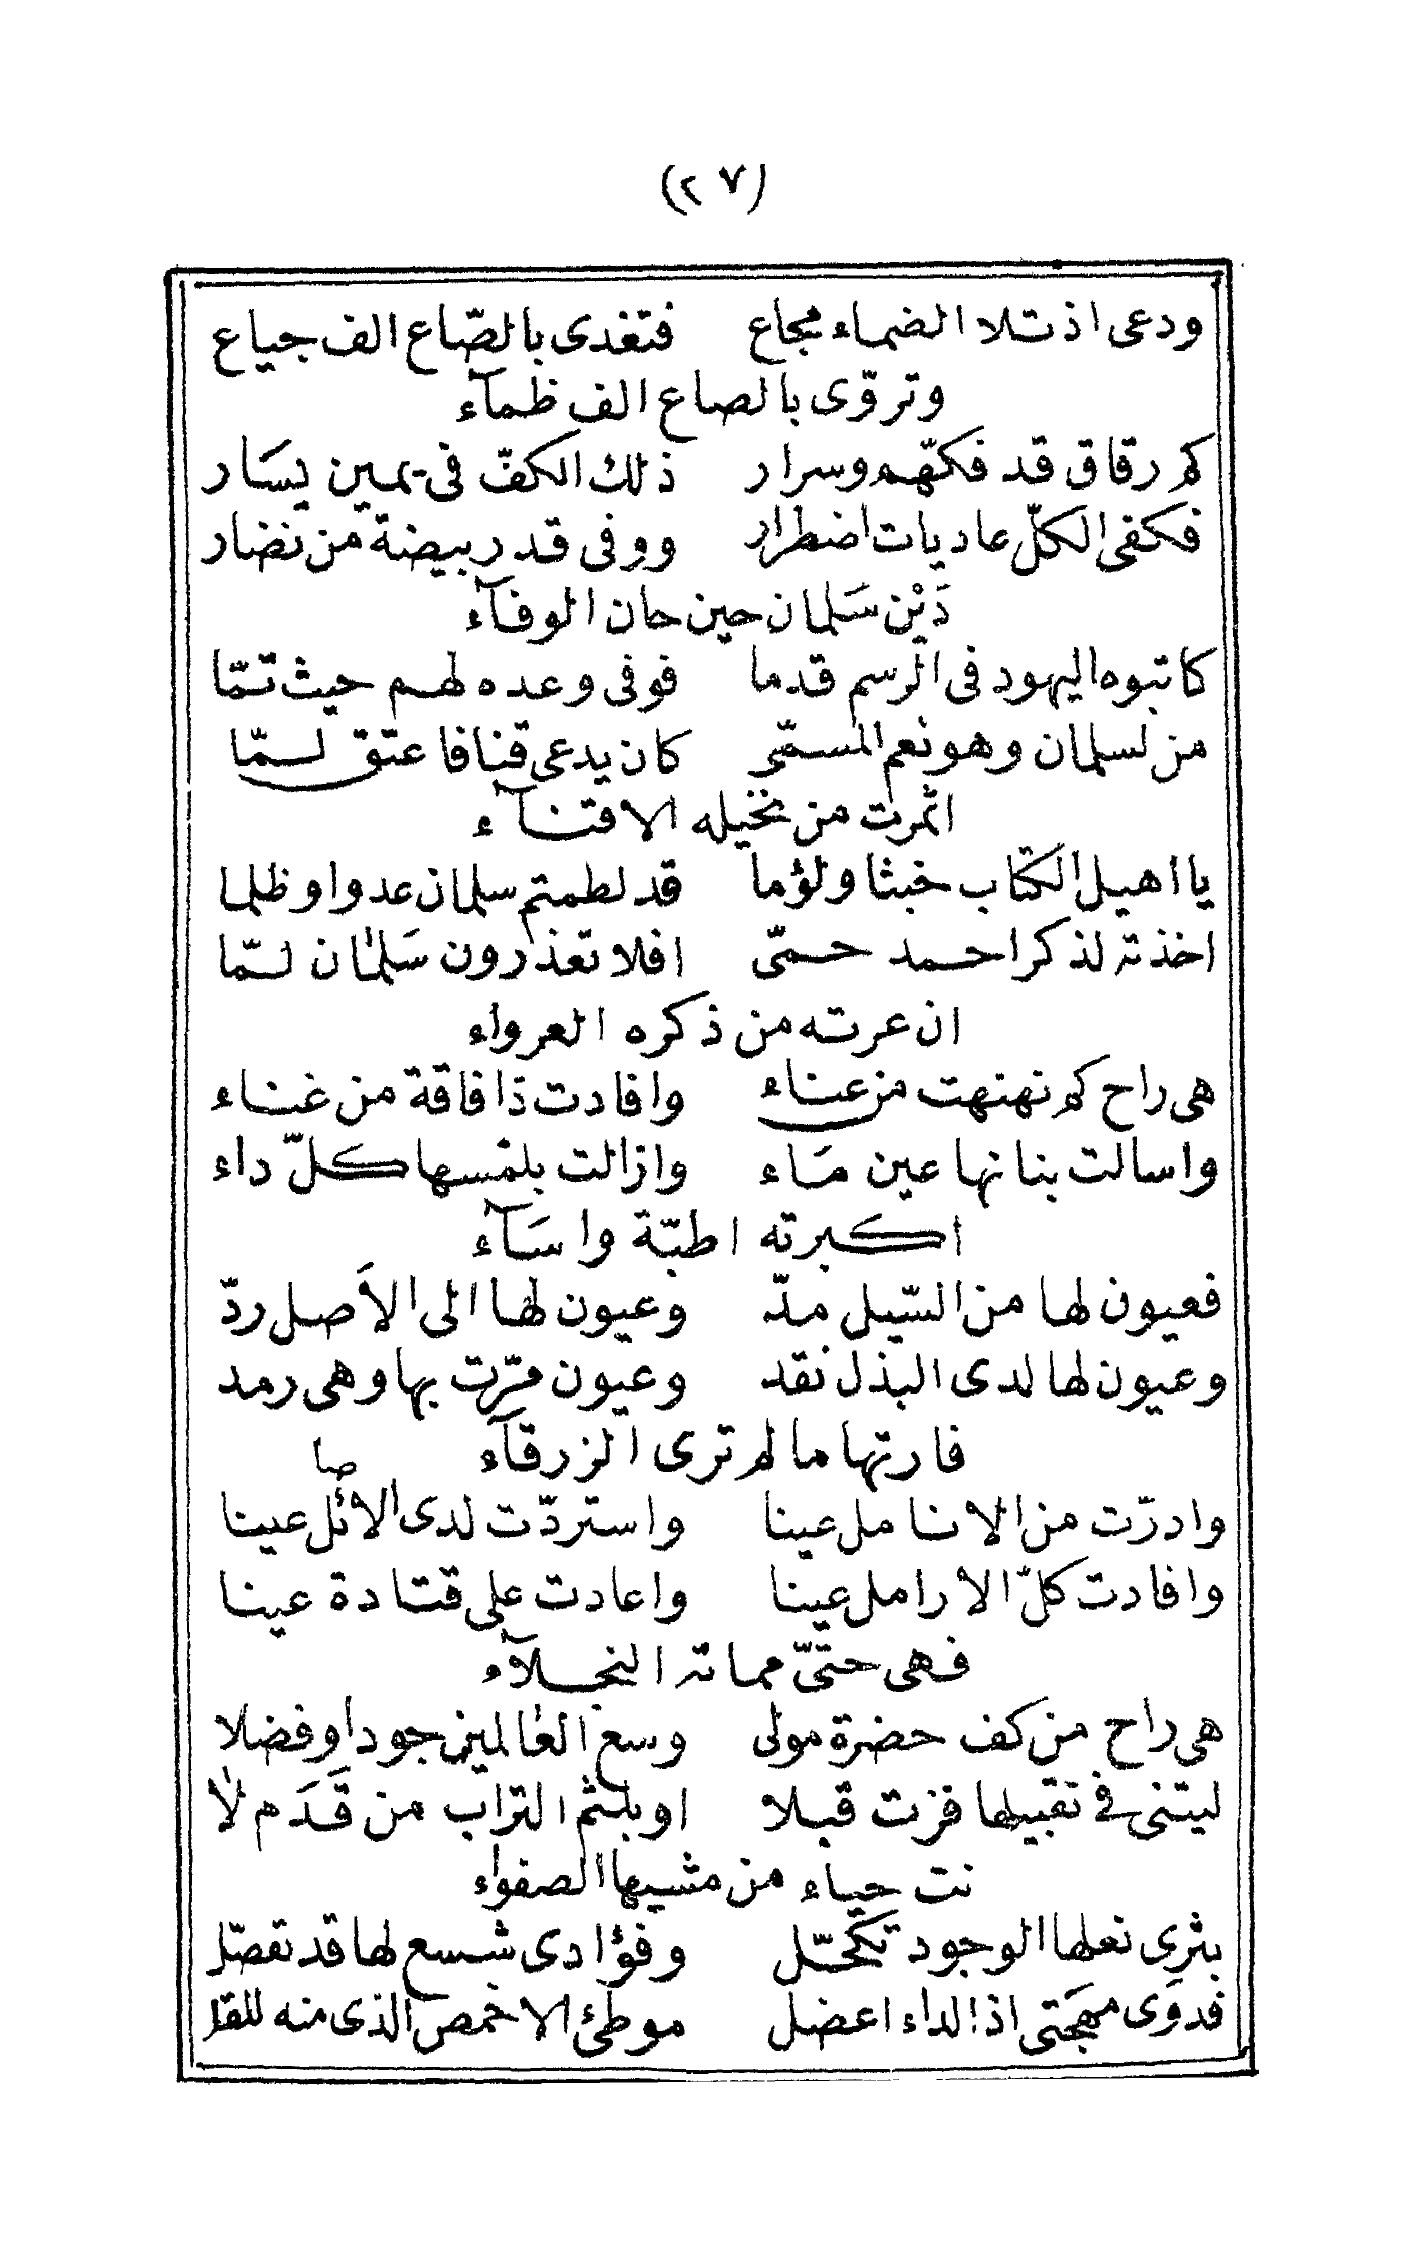 (٢٧)
ودعى اذ تلا الضماء مجاع فتغدى بالصّاع الف جياع
وتروّى بالصاع الف ظمآء
كم رقاق قد فكهّم وسرار ذلك الكفّ فى يمين يسَار
فكفى الكلّ عاديات اضطرار ووفى قدر بيضة من نضار
دَيْن سَلمان حين حان الوفآء
كاتبوه اليهود فى الرسم قدما فوفى وعده لهم حيث تمّا
من لسلمان وهو نعم المسمّى كان يدعى قنا فاعتق لمّا
اثمرت من نخيله الاقنآء
يا اهيل الكتاب خبثا ولؤما قد لطمتم سلمان عدوا وظلما
اخذته لذكر احمد حمّى افلا تعذرون سَلمان لمّا
ان عرته من ذكره العرواء
هى راح كم نهنهت من عناء وافادت ذا فاقة من غناء
واسالت بنانها عين مَاء وازالت بلمسها كلّ داء
اكبرته اطبّة واسَآء
فعيون لها من السّيل مدّ وعيون لها الى الاَصل ردّ
وعيون لها لدى البذل نقد وعيون مرّت بها وهى رمد
فارتها مالم ترى الزرقآء
صا
وادرّت من الانامل عينا واستردّت لدى الائل عينا
وافادت كلّ الارامل عينا واعادت على قتادة عينا
فهى حتىّ مماته النجلآء
هى راح من كف حضرة مولى وسع العالمين جودا وفضلا
ليتنى فى تقبيلها فزت قبلا اوبلثم التراب من قَدَم لا
نت حياء من مشيها الصفواء
بثرى نعلها الوجود تكحّل وفؤادى شسع لها قد تفصّل
فدوَى مهجَتى اذ الداء اعضل موطئ الاخمص الذى منه للقل